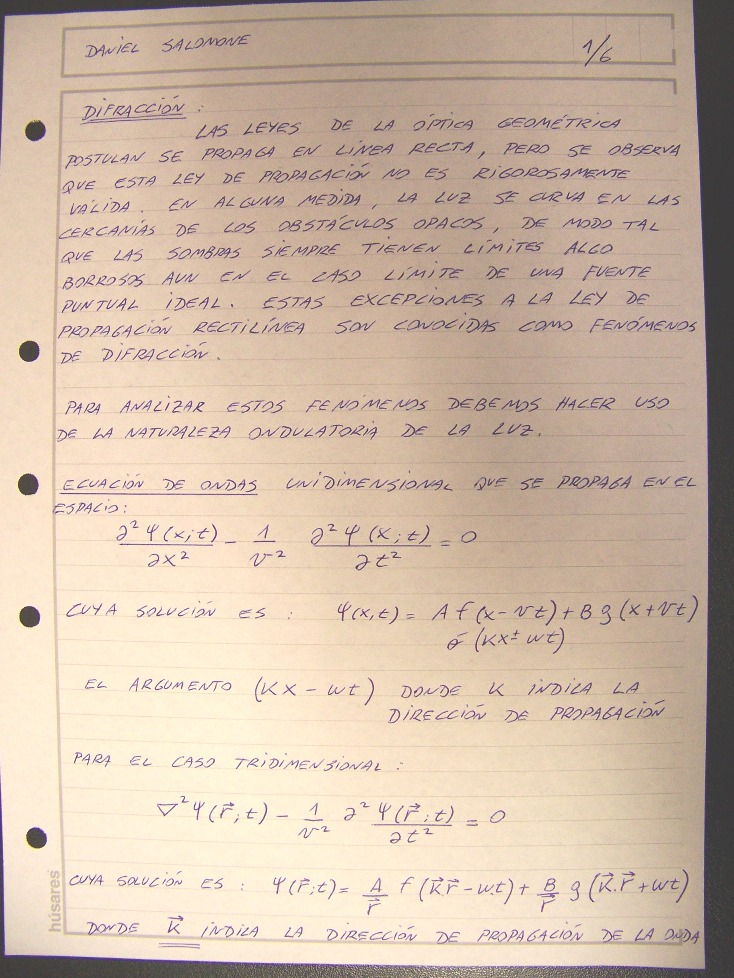 DANIEL SALOMONE
1/6
DIFRACCIÓN :
LAS LEYES DE LA ÓPTICA GEOMÉTRICA
POSTULAN SE PROPAGA EN LÍNEA RECTA, PERO SE OBSERVA
QUE ESTA LEY DE PROPAGACIÓN NO ES RIGOROSAMENTE
VÁLIDA. EN ALGUNA MEDIDA, LA LUZ SE CURVA EN LAS
CERCANÍAS DE LOS OBSTÁCULOS OPACOS, DE MODO TAL
QUE LAS SOMBRAS SIEMPRE TIENEN LÍMITES ALGO
BORROSOS AUN EN EL CASO LÍMITE DE UNA FUENTE
PUNTUAL IDEAL. ESTAS EXCEPCIONES A LA LEY DE
PROPAGACIÓN RECTILÍNEA SON CONOCIDAS COMO FENÓMENOS
DE DIFRACCIÓN.
PARA ANALIZAR ESTOS FENÓMENOS DEBEMOS HACER USO
DE LA NATURALEZA ONDULATORIA DE LA LUZ.
ECUACIÓN DE ONDAS UNIDIMENSIONAL QUE SE PROPAGA EN EL
ESPACIO:
∂²Ψ(x;t)/∂x² - 1/v² ∂²Ψ(x;t)/∂t² = 0
CUYA SOLUCIÓN ES : Ψ(x,t) = A f(x-vt) + B g(x+vt)
ó (kx ± wt)
EL ARGUMENTO (kx - wt) DONDE K INDICA LA
DIRECCIÓN DE PROPAGACIÓN
PARA EL CASO TRIDIMENSIONAL :
∇²Ψ(r⃗;t) - 1/v² ∂²Ψ(r⃗;t)/∂t² = 0
CUYA SOLUCIÓN ES : Ψ(r⃗;t) = A/r⃗ f(k⃗.r⃗ - w.t) + B/r⃗ g(k⃗.r⃗ + wt)
DONDE k⃗ INDICA LA DIRECCIÓN DE PROPAGACIÓN DE LA ONDA
húsares